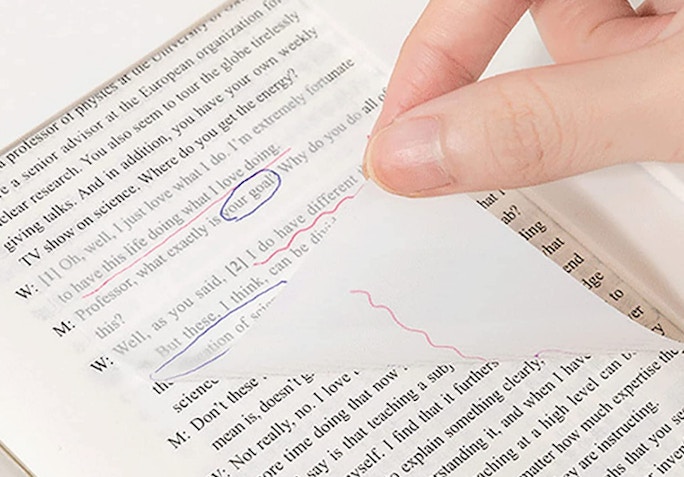 professor of physics at the University of
e a senior advisor at the European organization for
clear research. You also seem to tour the globe tirelessly
giving talks. And in addition, you have your own weekly
TV show on science. Where do you get the energy?
W: [1] Oh, well, I just love what I do. I'm extremely fortunate
to have this life doing what I love doing.
M: Professor, what exactly is your goal Why do you do all of
this?
W: Well, as you said, [2] I do have different
But these, I think, can be
of
science
M: Don't these
mean is, doesn't
W: Not really, no. I love
ore time doing that now
say is that teaching a
yself. I find that it furthers
o explain something clearly,
erstanding it, and when I have
aching at a high level can b
matter how much expertise the
ey are instructing.
ths that you se
ab?
that
end
dge
to